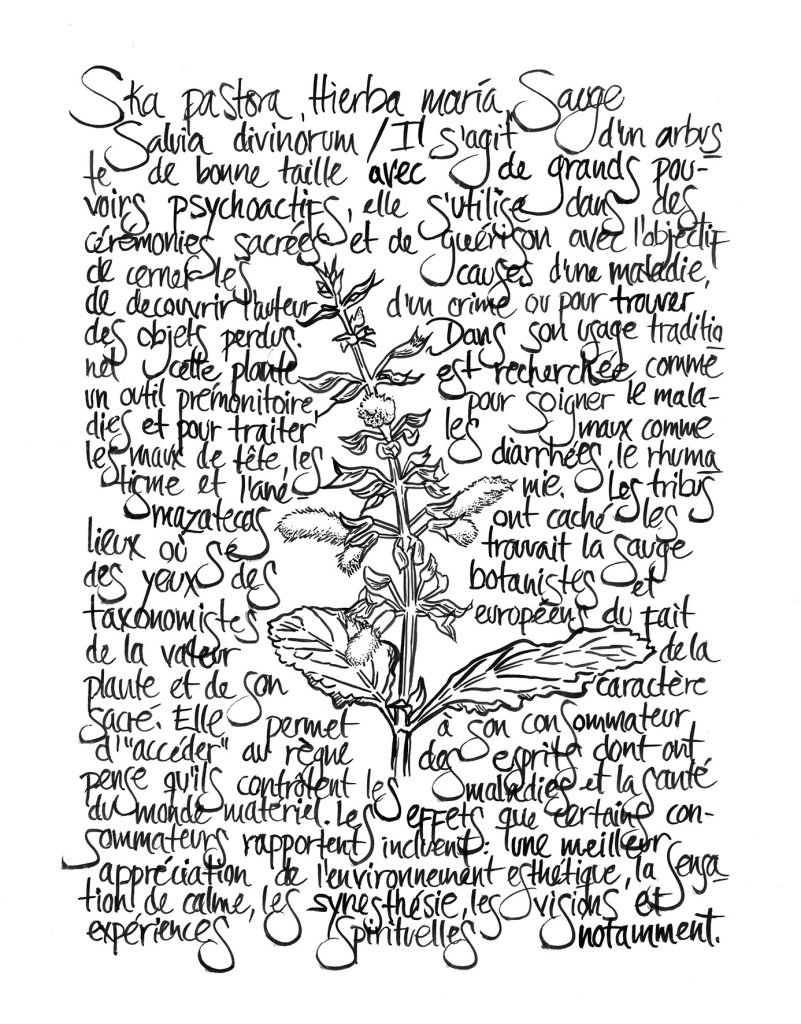 Ska pastora, Hierba maría, Sauge
Salvia divinorum / Il s'agit d'un arbus
te de bonne taille avec de grands pou-
voirs psychoactifs, elle s'utilise dans des
cérémonies sacrées et de guérison avec l'objectif
de cerner les causes d'une maladie,
de decouvrir l'auteur d'un crime ou pour trouver
des objets perdus. Dans son usage traditio
nel cette plante est recherchée comme
un outil prémonitoire, pour soigner le mala-
dies et pour traiter les maux comme
les maux de tête, les diarrhées, le rhuma
tisme et l'ané- mie. Les tribus
mazatecas ont caché les
lieux où se trouvait la sauge
des yeux des botanistes et
taxonomistes européens du fait
de la valeur de la
plante et de son caractère
sacré. Elle permet à son consommateur
d'"accéder" au règne des esprits dont ont
pense qu'ils contrôlent les maladies et la santé
du monde materiel. Les effets que certains con-
sommateurs rapportent incluent: une meilleur
appréciation de l'environnement esthétique, la sensa
tion de calme, les synesthésie, les visions et
expériences spirituelles notamment.